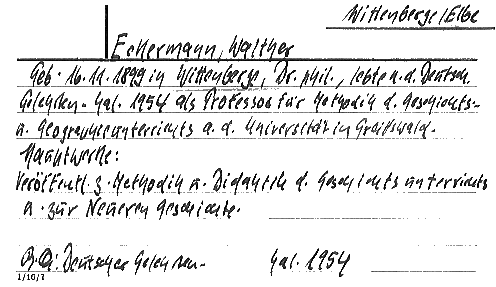 Wittenberge/Elbe
Eckermann, Walther
Geb. 16.11.1899 in Wittenberge, Dr. phil., lebte n.d. Deutsch.
Gelehrten-Kal. 1954 als Professor für Methodik d. Geschichts-
u. Geographieunterrichts a.d. Universität in Greifswald.
Hauptwerke:
Veröffentl. z. Methodik u. Didaktik d. Geschichtsunterrichts
u. zur Neueren Geschichte.
Deutscher Gelehrten- Kal. 1954
1/16/7